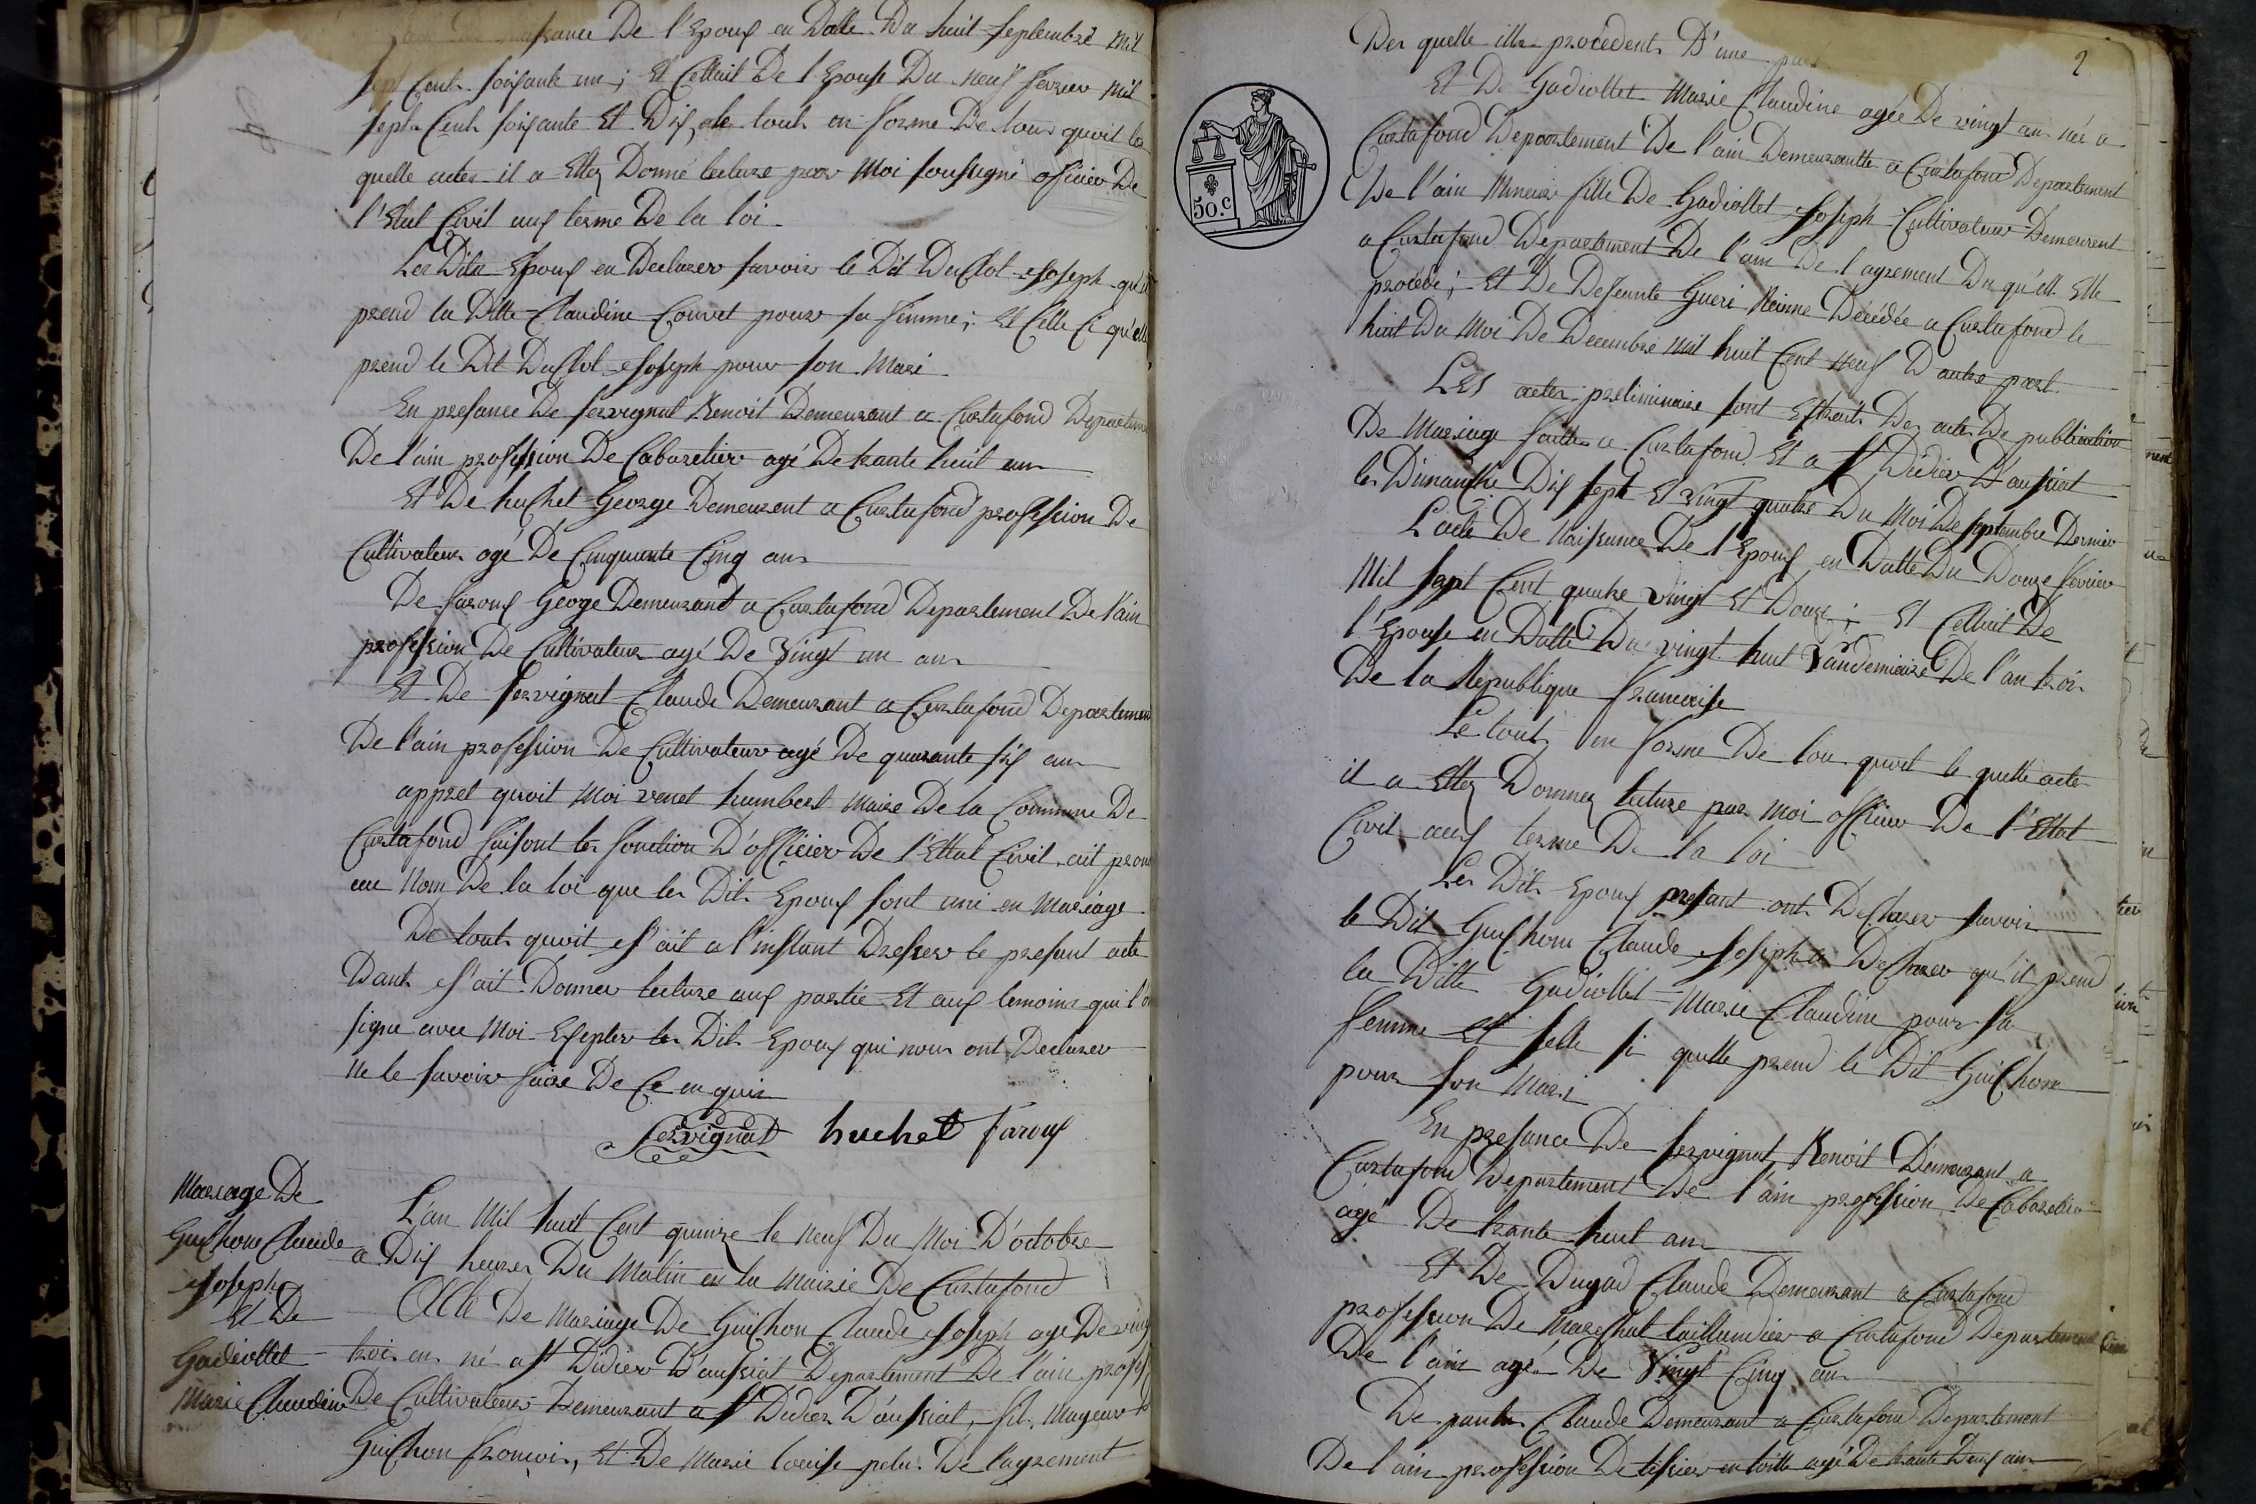 naissance De l'Epoux en Datte Du huit Septembre mil
sept Cent soisante un ; Et Celluit De l'Epouse Du neuf fevrier mil
sept Cent soisante Et Dix, de tout en forme De tous quoit les
quelle actes il a Ettez Donné lecture par Moi soussigné officier De
l'Etat Civil aux terme De la loi
Les Dits Epoux en Declarer savoir le Dit Duclot Joseph qu'il
prend la Ditte Claudine Convet pour sa femme ; Et Celle Ci qu'elle
prend le Dit Duclot Joseph pour son Mari
En presance De servignat Benoit Demeurant a Curtafond Departement
De l'ain profession De Cabaretier agé De trante huit ans
Et De huchet George Demeurent a Curtafond profession De
Cultivateur agé De Cinquante Cinq ans
De faroux Geoge Demeurant a Curtafond Departement De l'ain
profession De Cultivateur agé De Vingt un ans
Et De servignat Claude Demeurant a Curtafond Departement
De l'ain profession De Cultivateur agé De quarante six ans
appret quoit Moi venet humbert Maire De la Commune De
Curtafond faisont les fonction D'officier De l'Ettat Civil ait prononcé
au Nom De la loi que les Dits Epoux sont uni en Mariage
De tout quoit J'ait a l'instant Dresser le presant acte
Dant J'ait Donner lecture aux partie Et aux temoins qui l'ont
signe avec Moi Excepter les Dits Epoux qui nous ont Declarer
Ne le savoir faire De Ce en quis
Servignat huchet faroux
Mariage De
Guichon Claude
Joseph
Et De
Gadiollet
Marie Claudine
L'an Mil huit Cent quinze le neuf Du Moi D'octobre
a Dix heures Du Matin en la Mairie De Curtafond
Acte De Mariage De Guichon Claude Joseph agé De vingt
trois ans né a St Didier D'aussiat Departement De l'ain profession
De Cultivateur Demeurant a St Didier D'aussiat, fils Mageur De
Guichon francois, Et De Marie louise De l'agrement
2
Des quelle ille procedent D'une part
Et De Gadiollet Marie Claudine agée De vingt ans née a
Curtafond Departement De l'ain Demeurantte a Curtafond Departement
De l'ain Mineur fille De Gadiollet Joseph Cultivateur Demeurent
a Curtafond Departement De l'ain De l'agrement Du qu'ell Elle
procede ; Et De Defeunte Gueri Reinne Décédée a Curtafond le
huit Du Moi De Decembre mil huit Cent Neuf D'autre part
Les actes preliminaire sont Extrait Des actes De publication
De Mariage faittes a Curtafond Et a St Didier D'aussiat
les Dimanche Dix sept Et Vingt quatre Du Moi De septembre Dernier
L'acte De Naissance De l'Epoux en Datte Du Douze fevrier
Mil sept Cent quatre vingt Et Douze ; Et Celluit De
l'Epouse en Datte Du vingt huit Vandemiaire De l'an trois
De la Republique francaise
Le tout en forme De tou quoit le quelle actes
il a Ettez Donnez lecture par Moi officier De l'Ettat
Civil aux terme De la loi
Les Dits Epoux presant ont Declarer savoir
le Dit Guichon Claude Joseph a Declarer qu'il prend
la Ditte Gadiollet Marie Claudine pour sa
femme Et selle si quelle prend le Dit Guichon
pour son Mari
En presance De servignat Benoit Demeurant a
Curtafond Departement De l'ain profession De Cabaretier
agé De trante huit ans
Et De Dugad Claude Demeurant a Curtafond
profession De Marechal taillandier a Curtafond Departement
De l'ain agé De Vingt Cinq ans
De Claude Demeurant a Curtafond Departement
De l'ain profession De tissier en toille agé De trante Deux ans
50.c